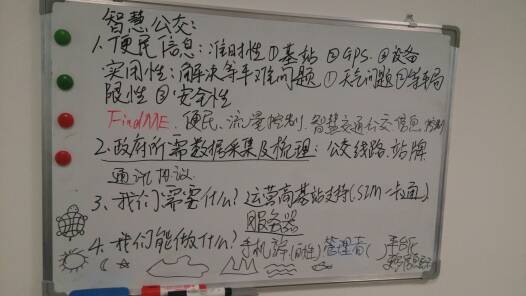 智慧公交:
1. 便民信息: 准时性 ①基站 ②GPS ③设备
实用性: 解决等车难问题 ①天气问题 ②等车局
限性 ③安全性
FindME 便民、流量控制、智慧交通公交信息
2. 政府所需数据采集及梳理: 公交线路、站牌
通讯协议
3、我们需要什么? 运营商基站支持(SIM一卡通)
服务器
4. 我们能做什么? 手机端 管理者( )